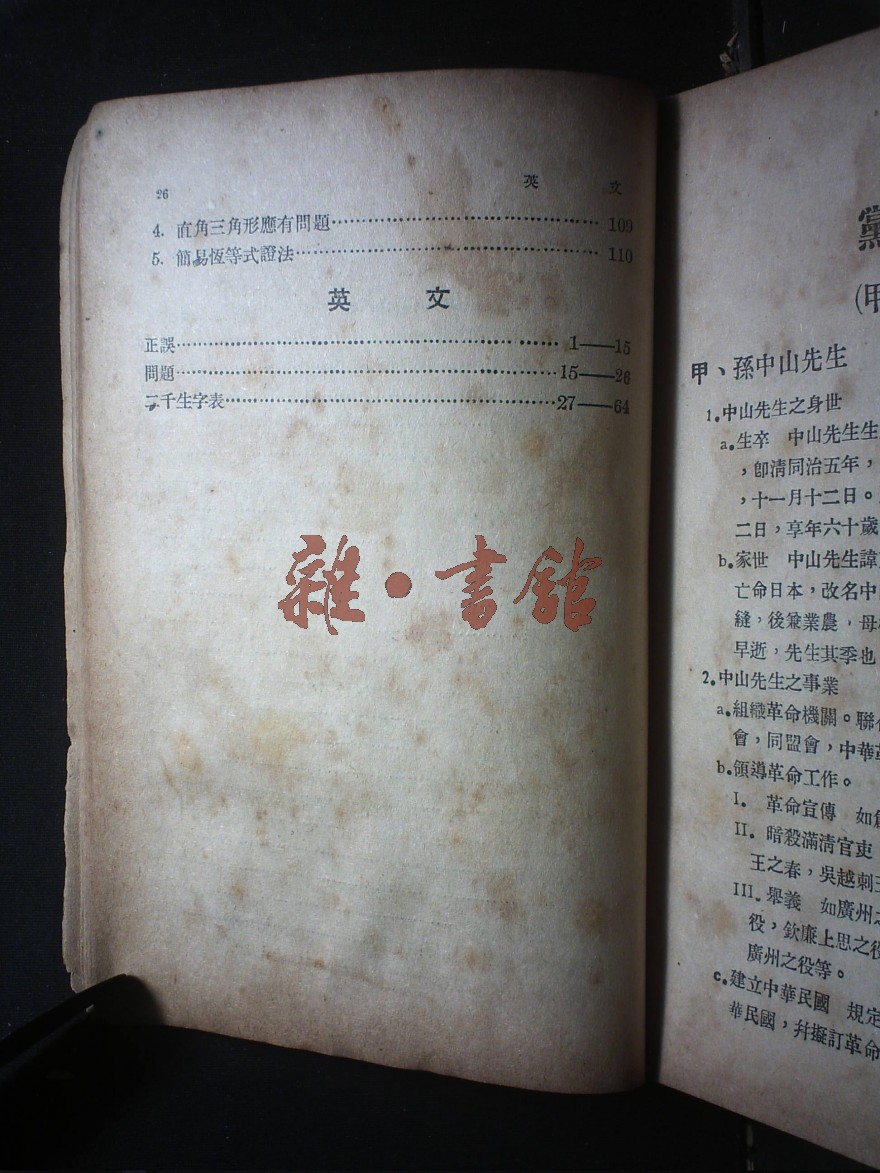 26 英 文
4. 直角三角形應有問題 109
5. 簡易恆等式證法 110
英 文
正誤 1——15
問題 15——26
二千生字表 27——64
雜·書館
黨
(甲
甲、孫中山先生
1.中山先生之身世
a.生卒 中山先生生
,卽淸同治五年,
,十一月十二日。
二日,享年六十歲
b.家世 中山先生諱
亡命日本,改名中
縫,後兼業農,母
早逝,先生其季也
2.中山先生之事業
a.組織革命機關。聯
會,同盟會,中華
b.領導革命工作。
I. 革命宣傳 如
II. 暗殺滿淸官吏
王之春,吳越刺
III. 舉義 如廣州
役,欽廉上思之役
廣州之役等。
c.建立中華民國 規定
華民國,幷擬訂革命